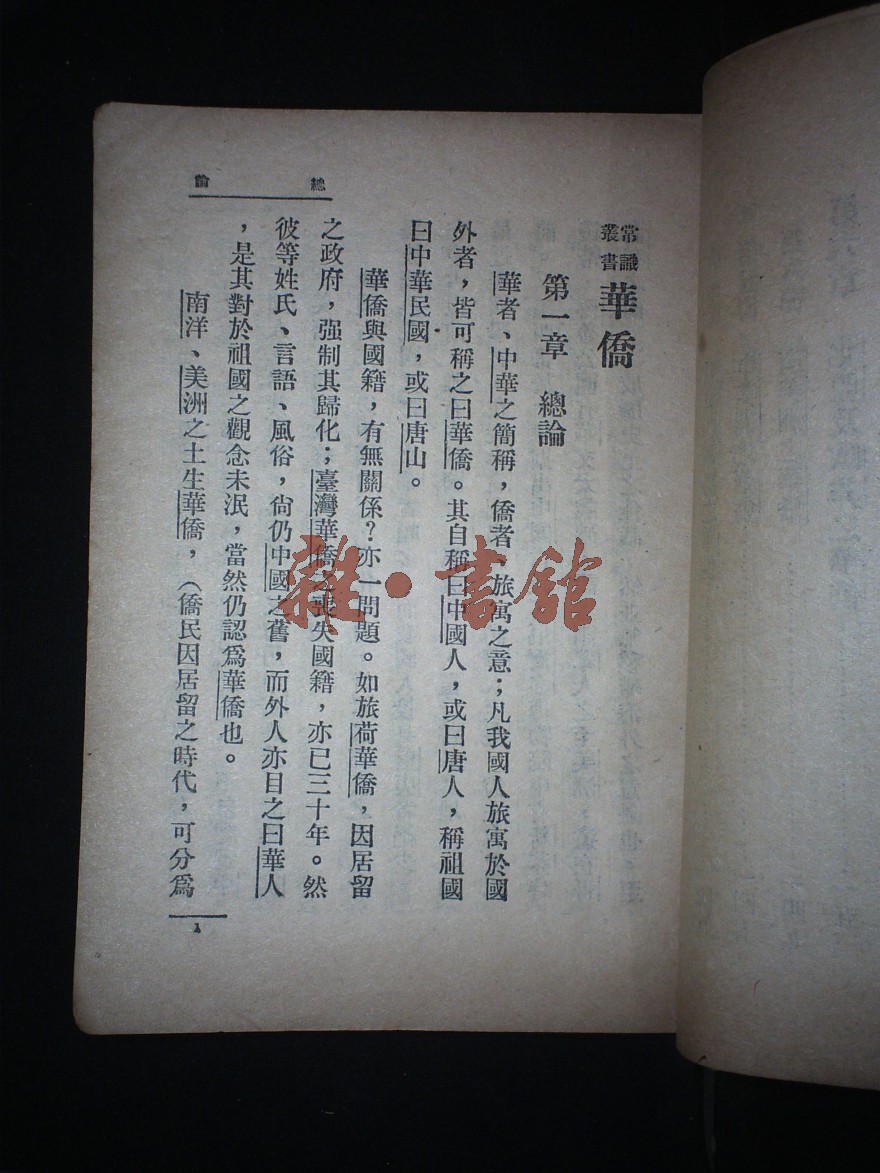 常識叢書 華僑
第一章 總論
華者、中華之簡稱，僑者、旅寓之意；凡我國人旅寓於國
外者，皆可稱之曰華僑。其自稱曰中國人，或曰唐人，稱祖國
曰中華民國，或曰唐山。
華僑與國籍，有無關係？亦一問題。如旅荷華僑，因居留
之政府，强制其歸化；臺灣華僑之喪失國籍，亦已三十年。然
彼等姓氏、言語、風俗，尙仍中國之舊，而外人亦目之曰華人
，是其對於祖國之觀念未泯，當然仍認爲華僑也。
南洋、美洲之土生華僑，（僑民因居留之時代，可分爲
總論
一
雜·書館